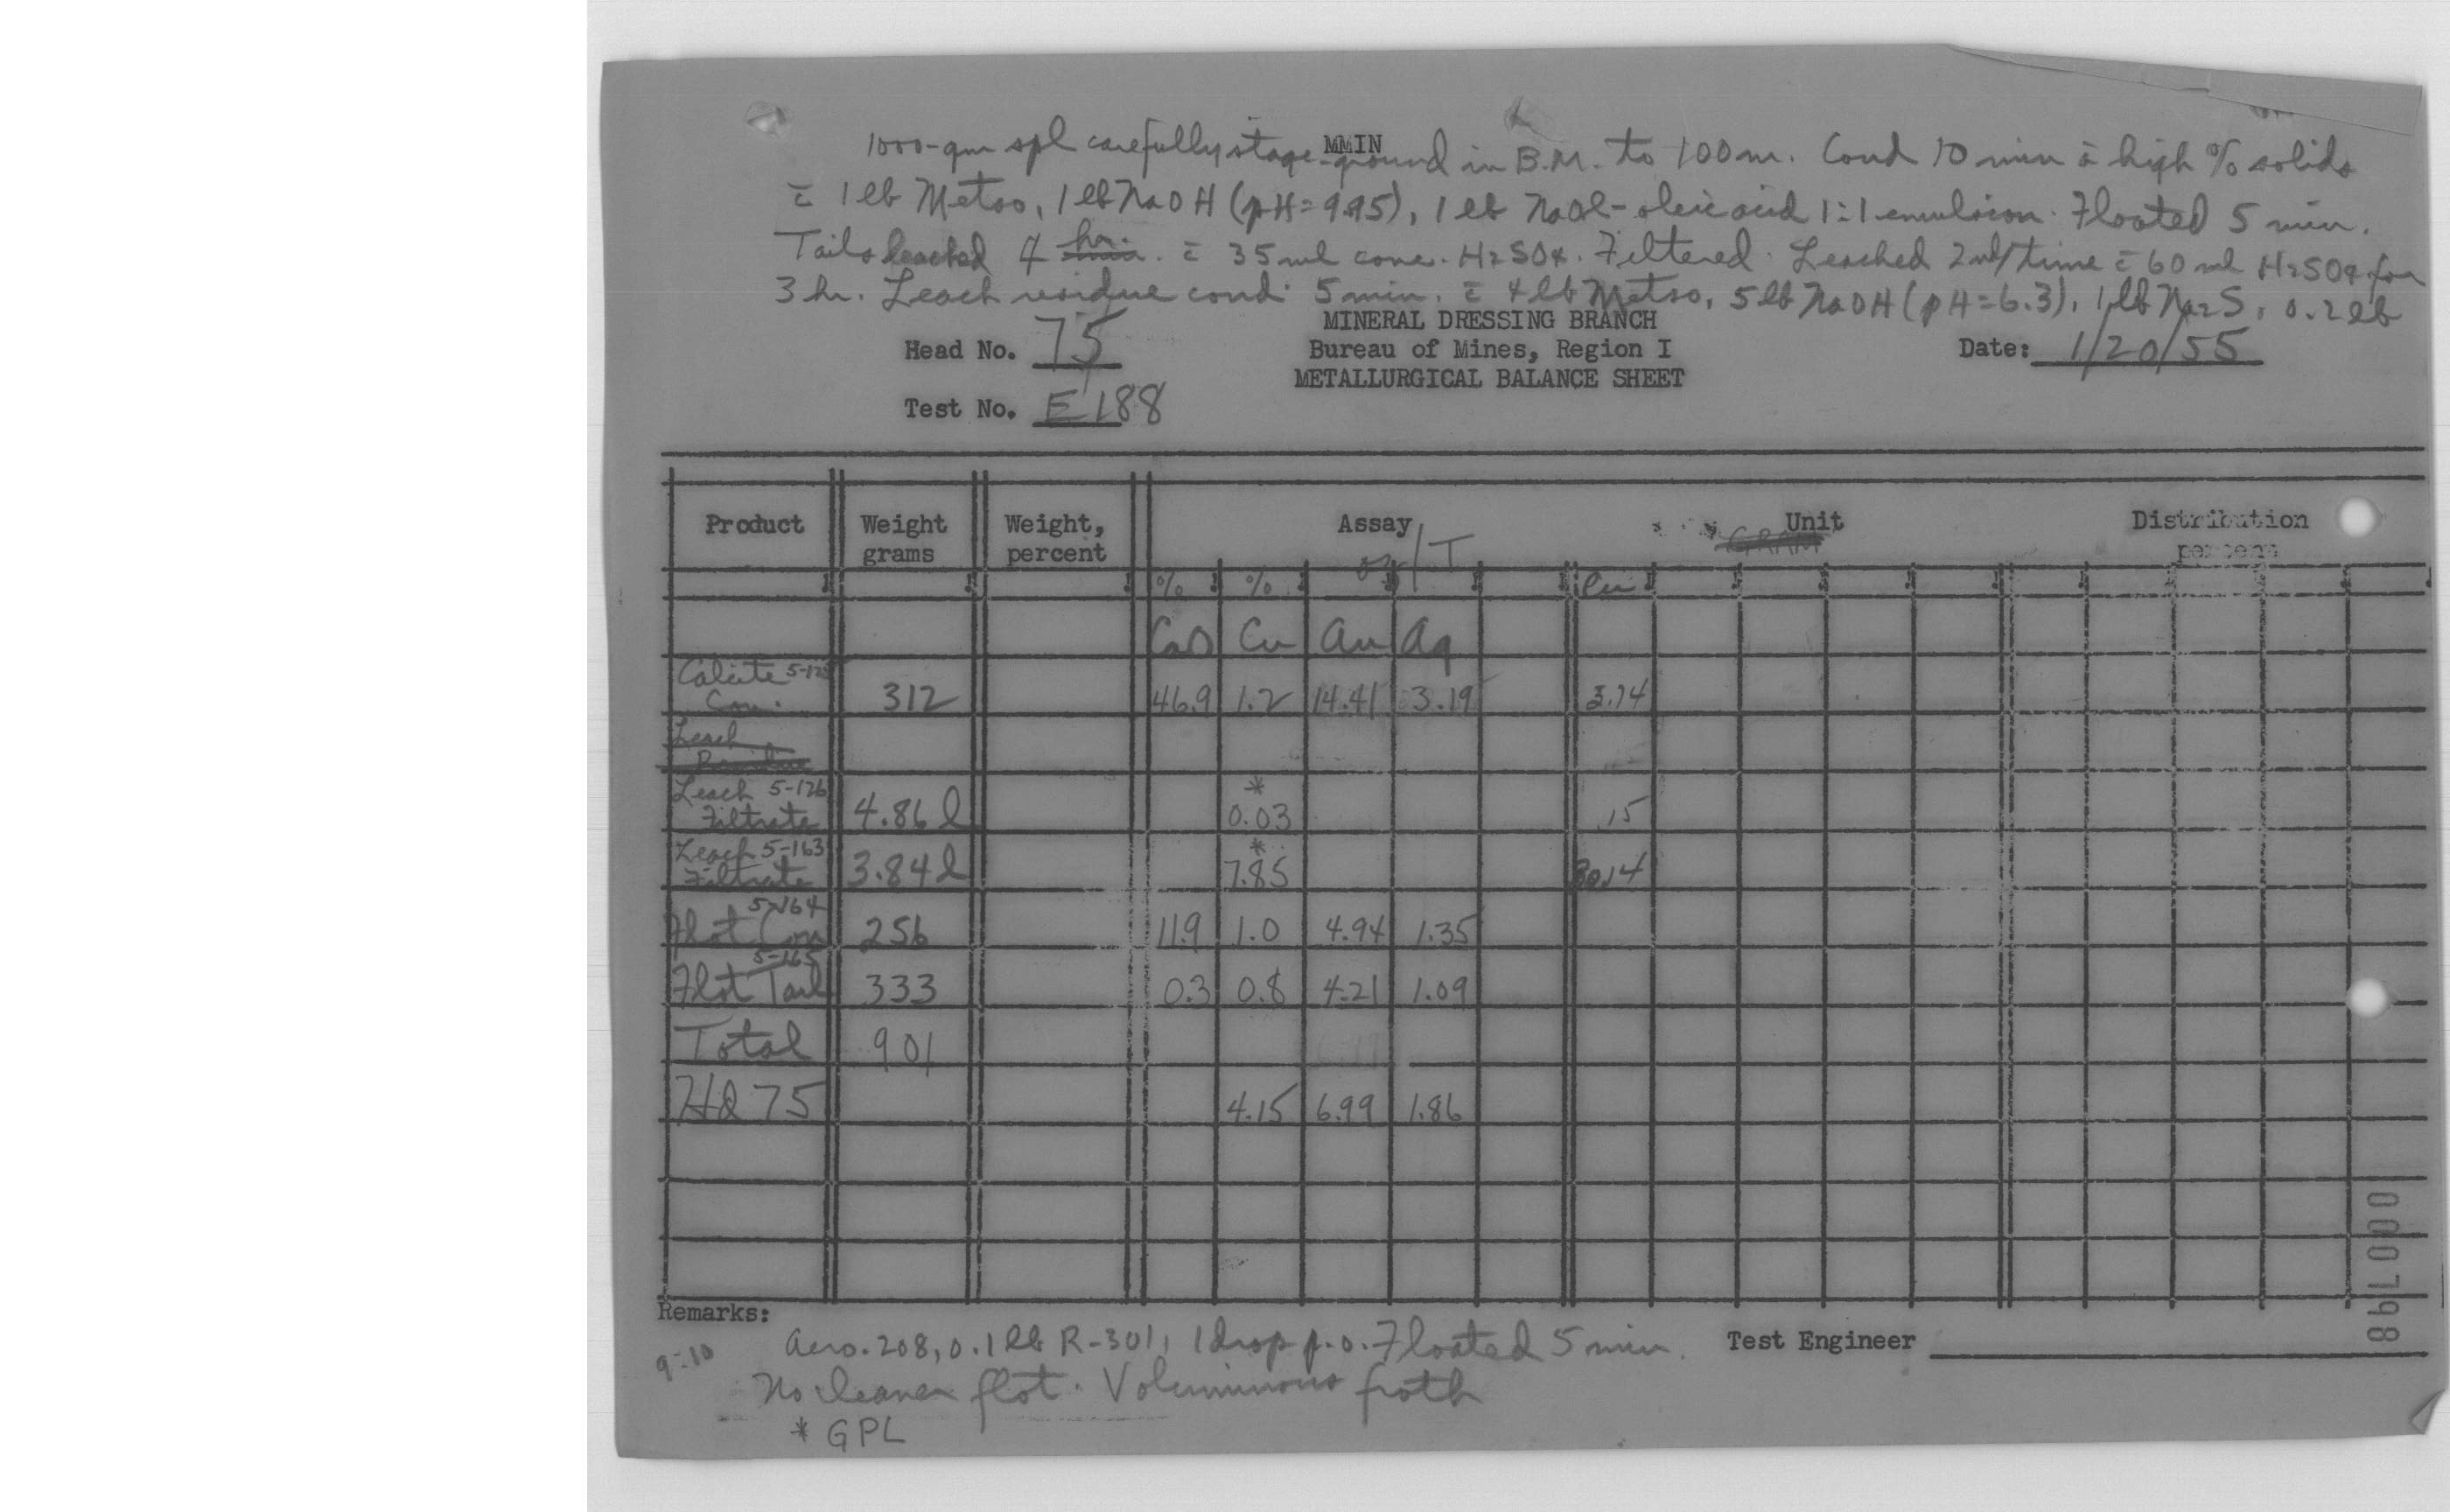 MMIN
1000-gm spl carefully stage-ground in B.M. to 100 m. Cond 10 min c̄ high % solids
c̄ 1 lb Metso, 1 lb NaOH (pH=9.95), 1 lb NaOl-oleic acid 1:1 emulsion. Floated 5 min.
Tails leached 4 hr. c̄ 35 ml conc. H2SO4. Filtered. Leached 2nd time c̄ 60 ml H2SO4 for
3 hr. Leach residue cond. 5 min. c̄ 4 lb Metso, 5 lb NaOH (pH=6.3), 1 lb Na2S, 0.2 lb
MINERAL DRESSING BRANCH
Head No. 75 Bureau of Mines, Region I Date: 1/20/55
METALLURGICAL BALANCE SHEET
Test No. E188
Product Weight grams Weight, percent Assay oz/T Unit GRAM Distribution percent
% % Cu
CaO Cu Au Ag
Calcite Con. 312 46.9 1.2 14.41 3.19 3.74
Leach Residue
Leach 5-126 Filtrate 4.86 l * 0.03 .15
Leach 5-163 Filtrate 3.84 l * 7.85 30.14
Flot Con 5-164 256 11.9 1.0 4.94 1.35
Flot Tail 5-165 333 0.3 0.8 4.21 1.09
Total 901
Hd 75 4.15 6.99 1.86
Remarks:
Aero. 208, 0.1 lb R-301, 1 drop p.o. Floated 5 min. Test Engineer
9-10
No cleaner flot. Voluminous froth
* GPL
000798